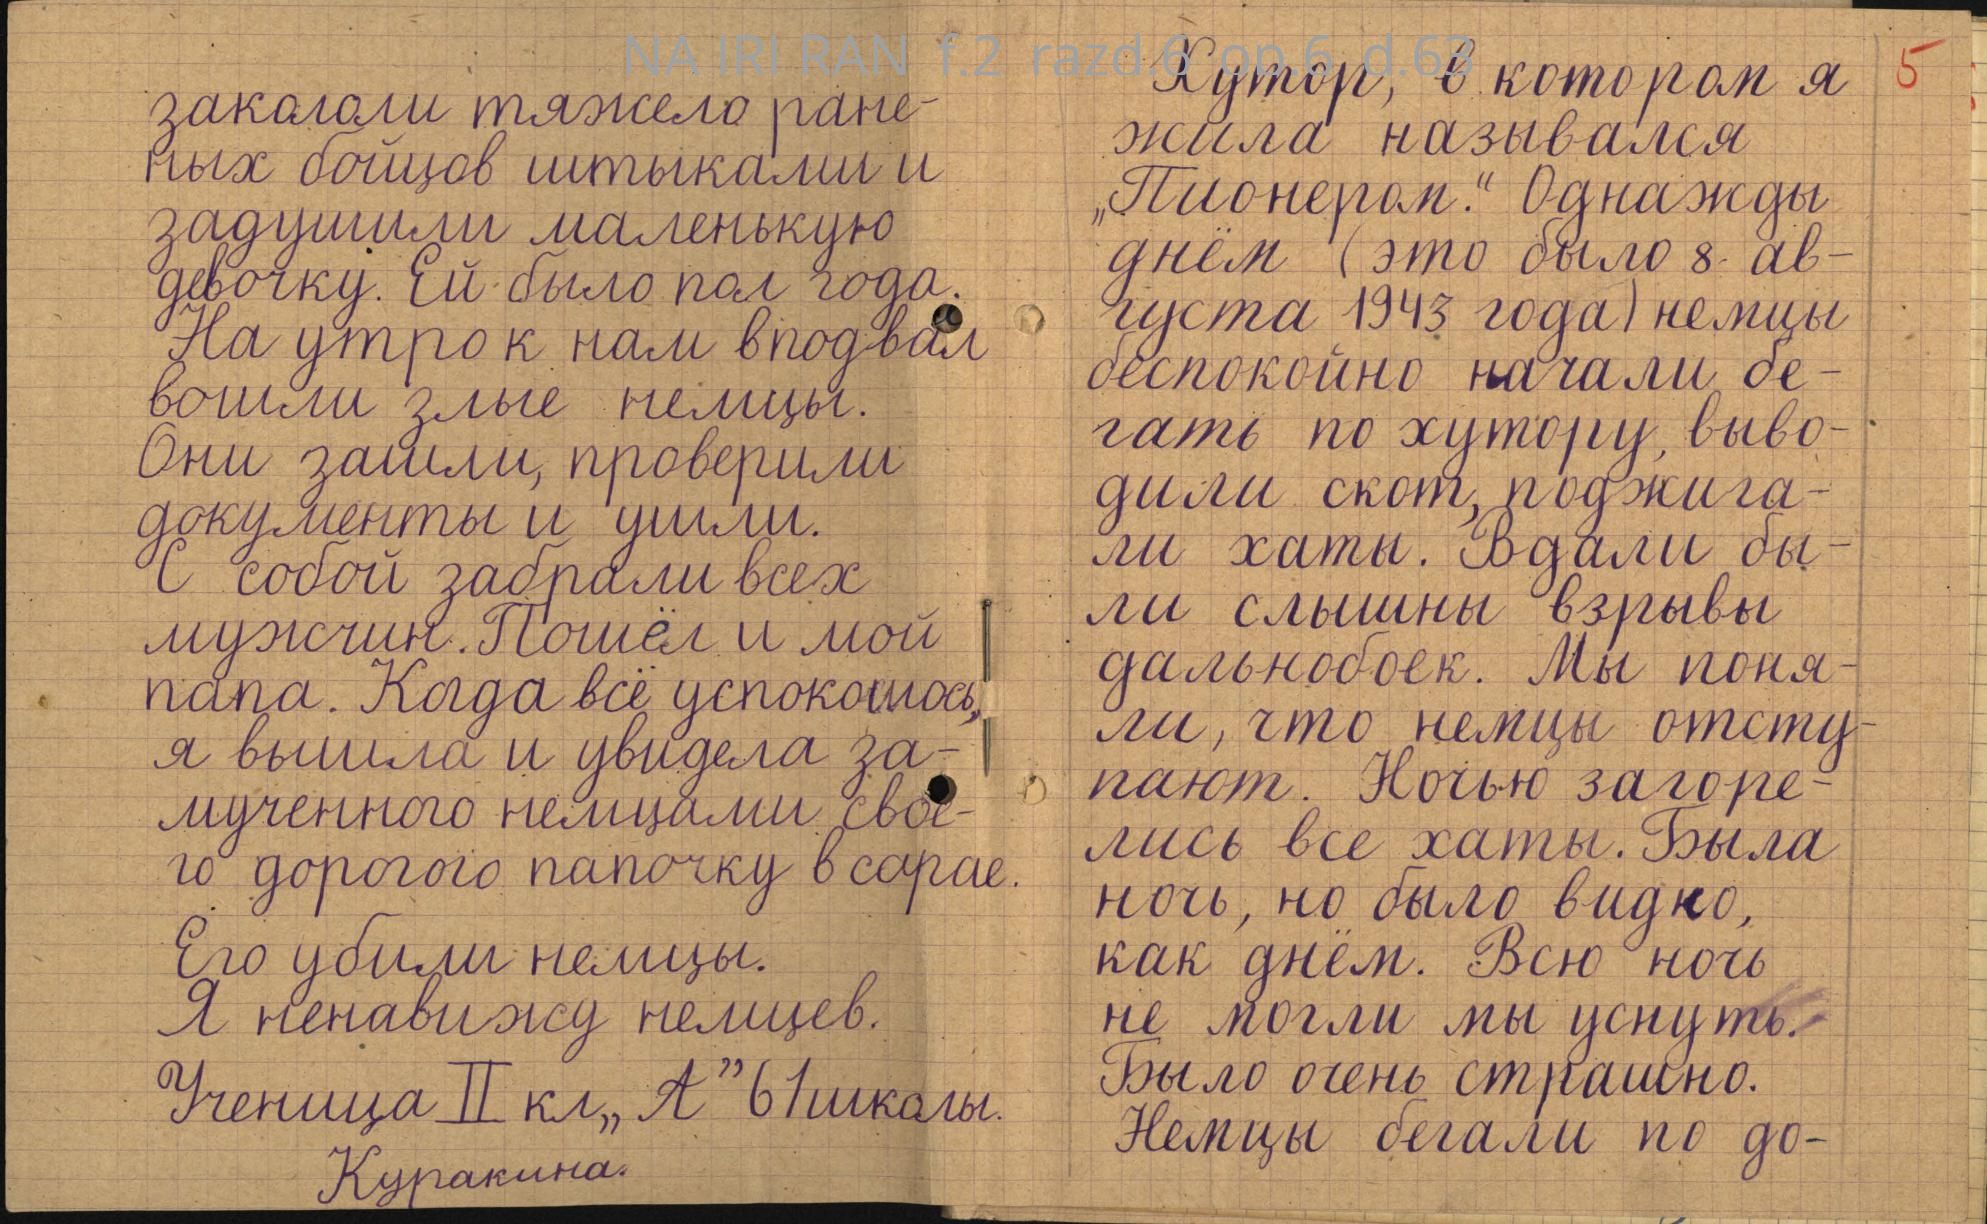 NA IRI RAN f.2 razd.6 op.6 d.63
закололи тяжело ране-
ных бойцов штыками и
задушили маленькую
девочку. Ей было пол года.
На утро к нам в подвал
вошли злые немцы.
Они зашли, проверили
документы и ушли.
С собой забрали всех
мужчин. Пошёл и мой
папа. Когда всё успокоилось,
я вышла и увидела за-
мученного немцами свое-
го дорогого папочку в сарае.
Его убили немцы.
Я ненавижу немцев.
Ученица II кл „А” 61 школы.
Куракина.
5
Хутор, в котором я
жила назывался
„Пионером.“ Однажды
днём (это было 8 ав-
густа 1943 года) немцы
беспокойно начали бе-
гать по хутору, выво-
дили скот, поджига-
ли хаты. Вдали бы-
ли слышны взрывы
дальнобоек. Мы поня-
ли, что немцы отсту-
пают. Ночью загоре-
лись все хаты. Была
ночь, но было видно,
как днём. Всю ночь
не могли мы уснуть.
Было очень страшно.
Немцы бегали по до-